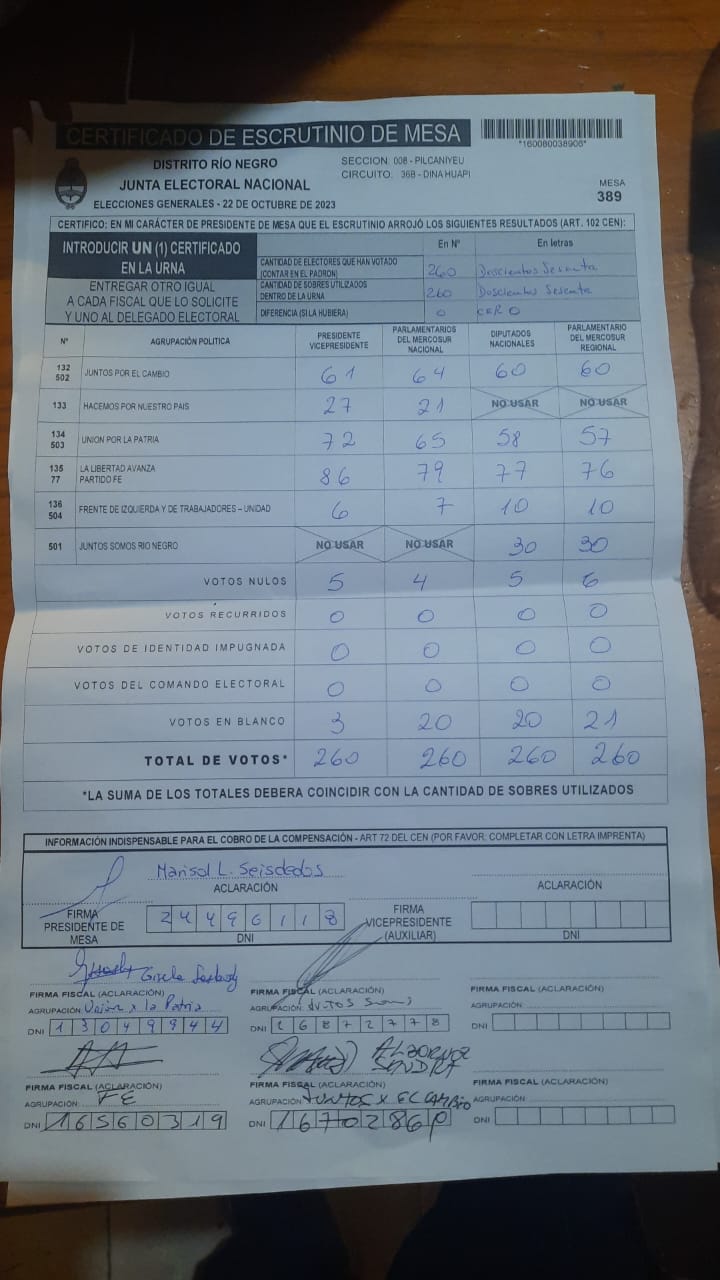 CERTIFICADO DE ESCRUTINIO DE MESA
*160080038906*
DISTRITO RÍO NEGRO
SECCION: 008 - PILCANIYEU
JUNTA ELECTORAL NACIONAL
CIRCUITO: 36B - DINA HUAPI
ELECCIONES GENERALES - 22 DE OCTUBRE DE 2023
MESA
389
CERTIFICO: EN MI CARÁCTER DE PRESIDENTE DE MESA QUE EL ESCRUTINIO ARROJÓ LOS SIGUIENTES RESULTADOS (ART. 102 CEN):
INTRODUCIR UN (1) CERTIFICADO
EN LA URNA
ENTREGAR OTRO IGUAL
A CADA FISCAL QUE LO SOLICITE
Y UNO AL DELEGADO ELECTORAL
En Nº En letras
CANTIDAD DE ELECTORES QUE HAN VOTADO
(CONTAR EN EL PADRON) 260 Doscientos Sesenta
CANTIDAD DE SOBRES UTILIZADOS
DENTRO DE LA URNA 260 Doscientos Sesenta
DIFERENCIA (SI LA HUBIERA) 0 CERO
Nº AGRUPACIÓN POLITICA PRESIDENTE VICEPRESIDENTE PARLAMENTARIOS DEL MERCOSUR NACIONAL DIPUTADOS NACIONALES PARLAMENTARIO DEL MERCOSUR REGIONAL
132 502 JUNTOS POR EL CAMBIO 61 64 60 60
133 HACEMOS POR NUESTRO PAIS 27 21 NO USAR NO USAR
134 503 UNION POR LA PATRIA 72 65 58 57
135 77 LA LIBERTAD AVANZA PARTIDO FE 86 79 77 76
136 504 FRENTE DE IZQUIERDA Y DE TRABAJADORES – UNIDAD 6 7 10 10
501 JUNTOS SOMOS RIO NEGRO NO USAR NO USAR 30 30
VOTOS NULOS 5 4 5 6
VOTOS RECURRIDOS 0 0 0 0
VOTOS DE IDENTIDAD IMPUGNADA 0 0 0 0
VOTOS DEL COMANDO ELECTORAL 0 0 0 0
VOTOS EN BLANCO 3 20 20 21
TOTAL DE VOTOS* 260 260 260 260
*LA SUMA DE LOS TOTALES DEBERA COINCIDIR CON LA CANTIDAD DE SOBRES UTILIZADOS
INFORMACIÓN INDISPENSABLE PARA EL COBRO DE LA COMPENSACIÓN - ART 72 DEL CEN (POR FAVOR: COMPLETAR CON LETRA IMPRENTA)
Marisol L. Seisdedos
ACLARACIÓN ACLARACIÓN
FIRMA
PRESIDENTE DE
MESA
24496118
DNI
FIRMA
VICEPRESIDENTE
(AUXILIAR)
DNI
Gisela
FIRMA FISCAL (ACLARACIÓN) FIRMA FISCAL (ACLARACIÓN) FIRMA FISCAL (ACLARACIÓN)
AGRUPACIÓN: Unión x la Patria AGRUPACIÓN: AGRUPACIÓN:
DNI 13049944 DNI 26872778 DNI
ALBORNOZ
SENDRA
FIRMA FISCAL (ACLARACIÓN) FIRMA FISCAL (ACLARACIÓN) FIRMA FISCAL (ACLARACIÓN)
AGRUPACIÓN: FE AGRUPACIÓN: JUNTOS X EL CAMBIO AGRUPACIÓN:
DNI 16560319 DNI DNI